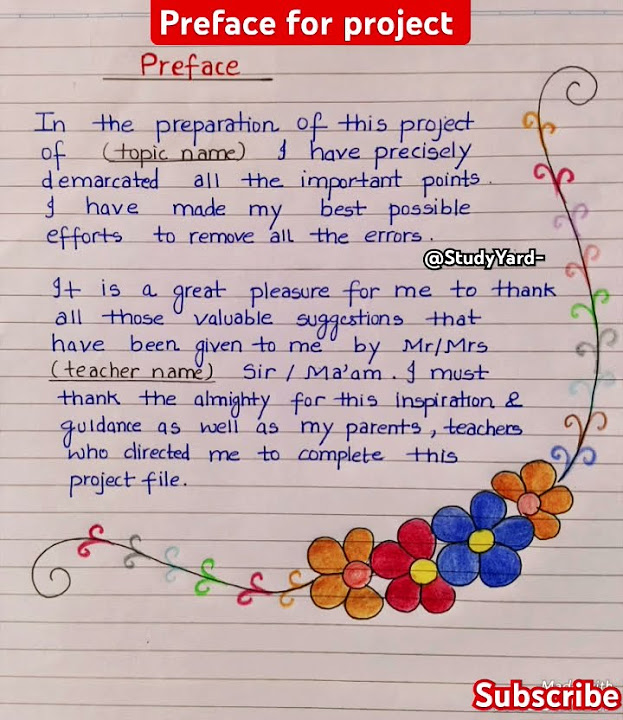 Preface for project
Preface
In the preparation of this project
of (topic name) I have precisely
demarcated all the important points.
I have made my best possible
efforts to remove all the errors.
@StudyYard-
It is a great pleasure for me to thank
all those valuable suggestions that
have been given to me by Mr/Mrs
(teacher name) Sir / Ma'am. I must
thank the almighty for this inspiration &
guidance as well as my parents, teachers
who directed me to complete this
project file.
Subscribe